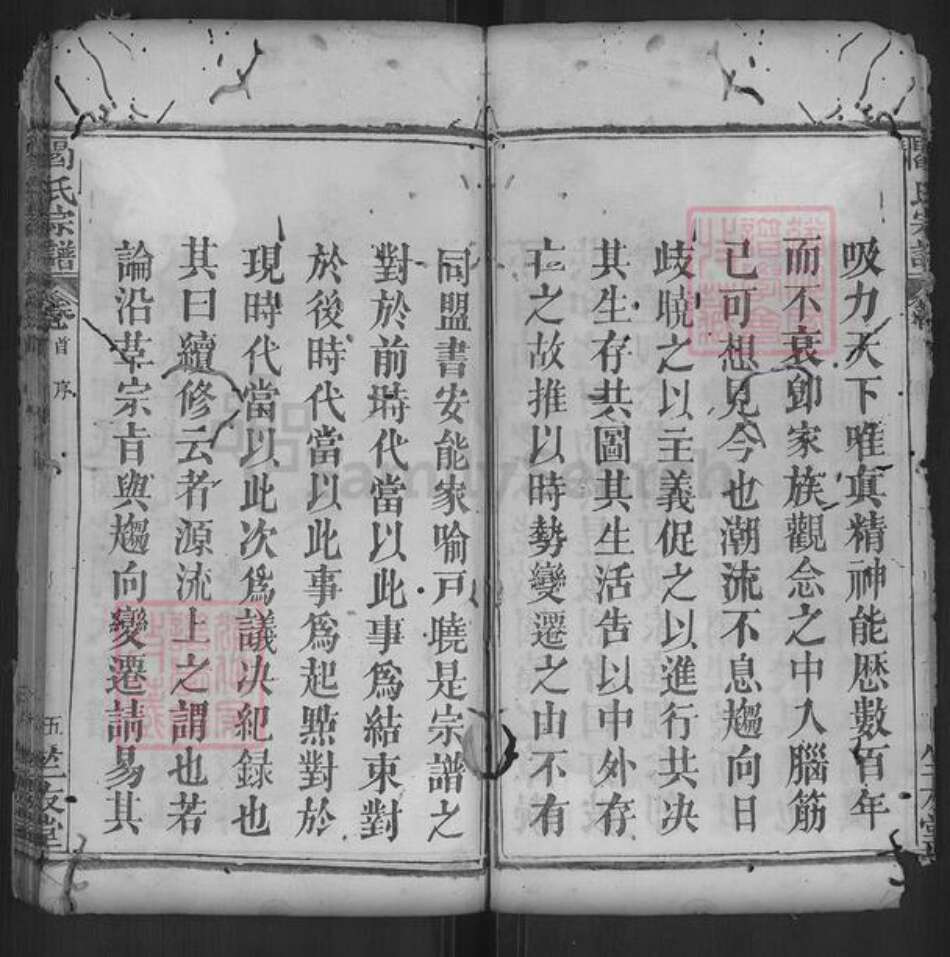 吸力天下唯真精神能歷數百年
而不衰卽家族觀念之中入腦筋
已可想見今也潮流不息趨向日
歧曉之以主義促之以進行共决
其生存共圖其生活告以中外存
亡之故推以時勢變遷之由不有
同盟書安能家喻戸曉是宗譜之
對於前時代當以此事爲結束對
於後時代當以此事爲起㸃對於
現時代當以此次爲議决紀録也
其曰續修云者源流上之謂也若
論沿革宗旨與趨向變遷請易其
氏宗譜
首 序
五
友堂